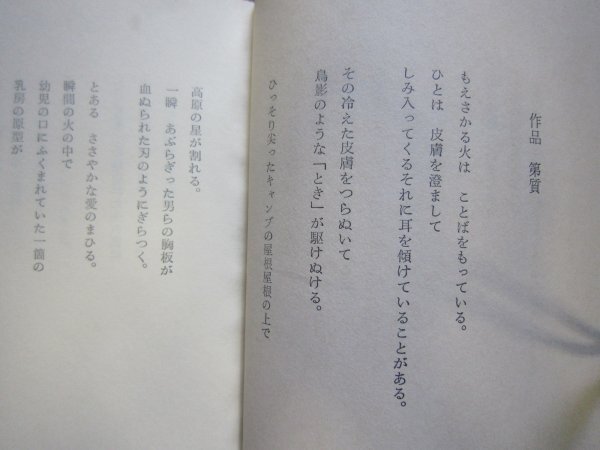 作品 第質
もえさかる火は ことばをもっている。
ひとは 皮膚を澄まして
しみ入ってくるそれに耳を傾けていることがある。
その冷えた皮膚をつらぬいて
鳥影のような「とき」が駆けぬける。
ひっそり尖ったキャンプの屋根屋根の上で
高原の星が割れる。
一瞬 あぶらぎった男らの胸板が
血ぬられた刃のようにぎらつく。
とある ささやかな愛のまひる。
瞬間の火の中で
幼児の口にふくまれていた一箇の
乳房の原型が